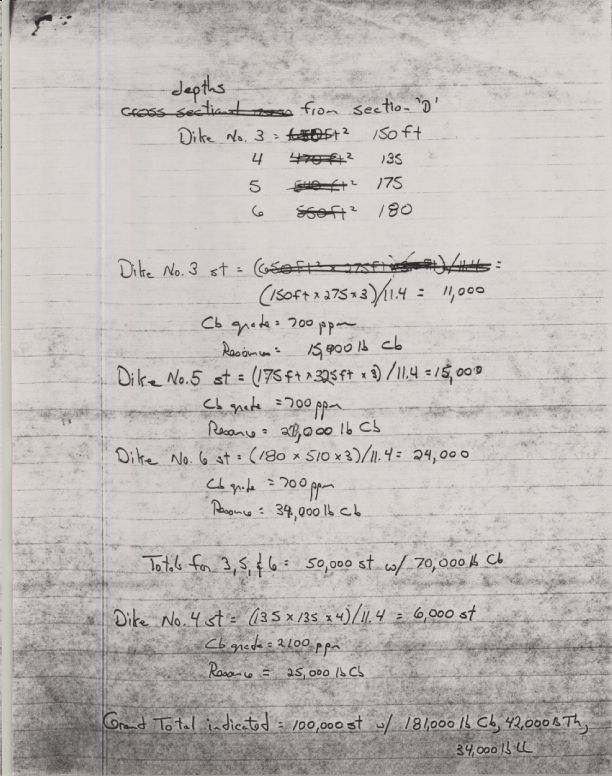 depths
cross sectional areas from section 'D'
Dike No. 3 = 650ft² 150 ft
4 470 ft² 135
5 540 ft² 175
6 550ft² 180
Dike No. 3 st = (650ft² x 275ft )/11.4 =
(150ft x 275 x 3)/11.4 = 11,000
Cb grade = 700 ppm
Resource = 15,000 lb Cb
Dike No. 5 st = (175ft x 325ft x 3)/11.4 = 15,000
Cb grade = 700 ppm
Resource = 21,000 lb Cb
Dike No. 6 st = (180 x 510 x 3)/11.4 = 24,000
Cb grade = 700 ppm
Resource = 34,000 lb Cb
Totals for 3, 5, & 6 = 50,000 st w/ 70,000 lb Cb
Dike No. 4 st = (135 x 135 x 4)/11.4 = 6,000 st
Cb grade = 2100 ppm
Resource = 25,000 lb Cb
Grand Total indicated = 100,000 st w/ 181,000 lb Cb, 42,000 lb Th,
34,000 lb U